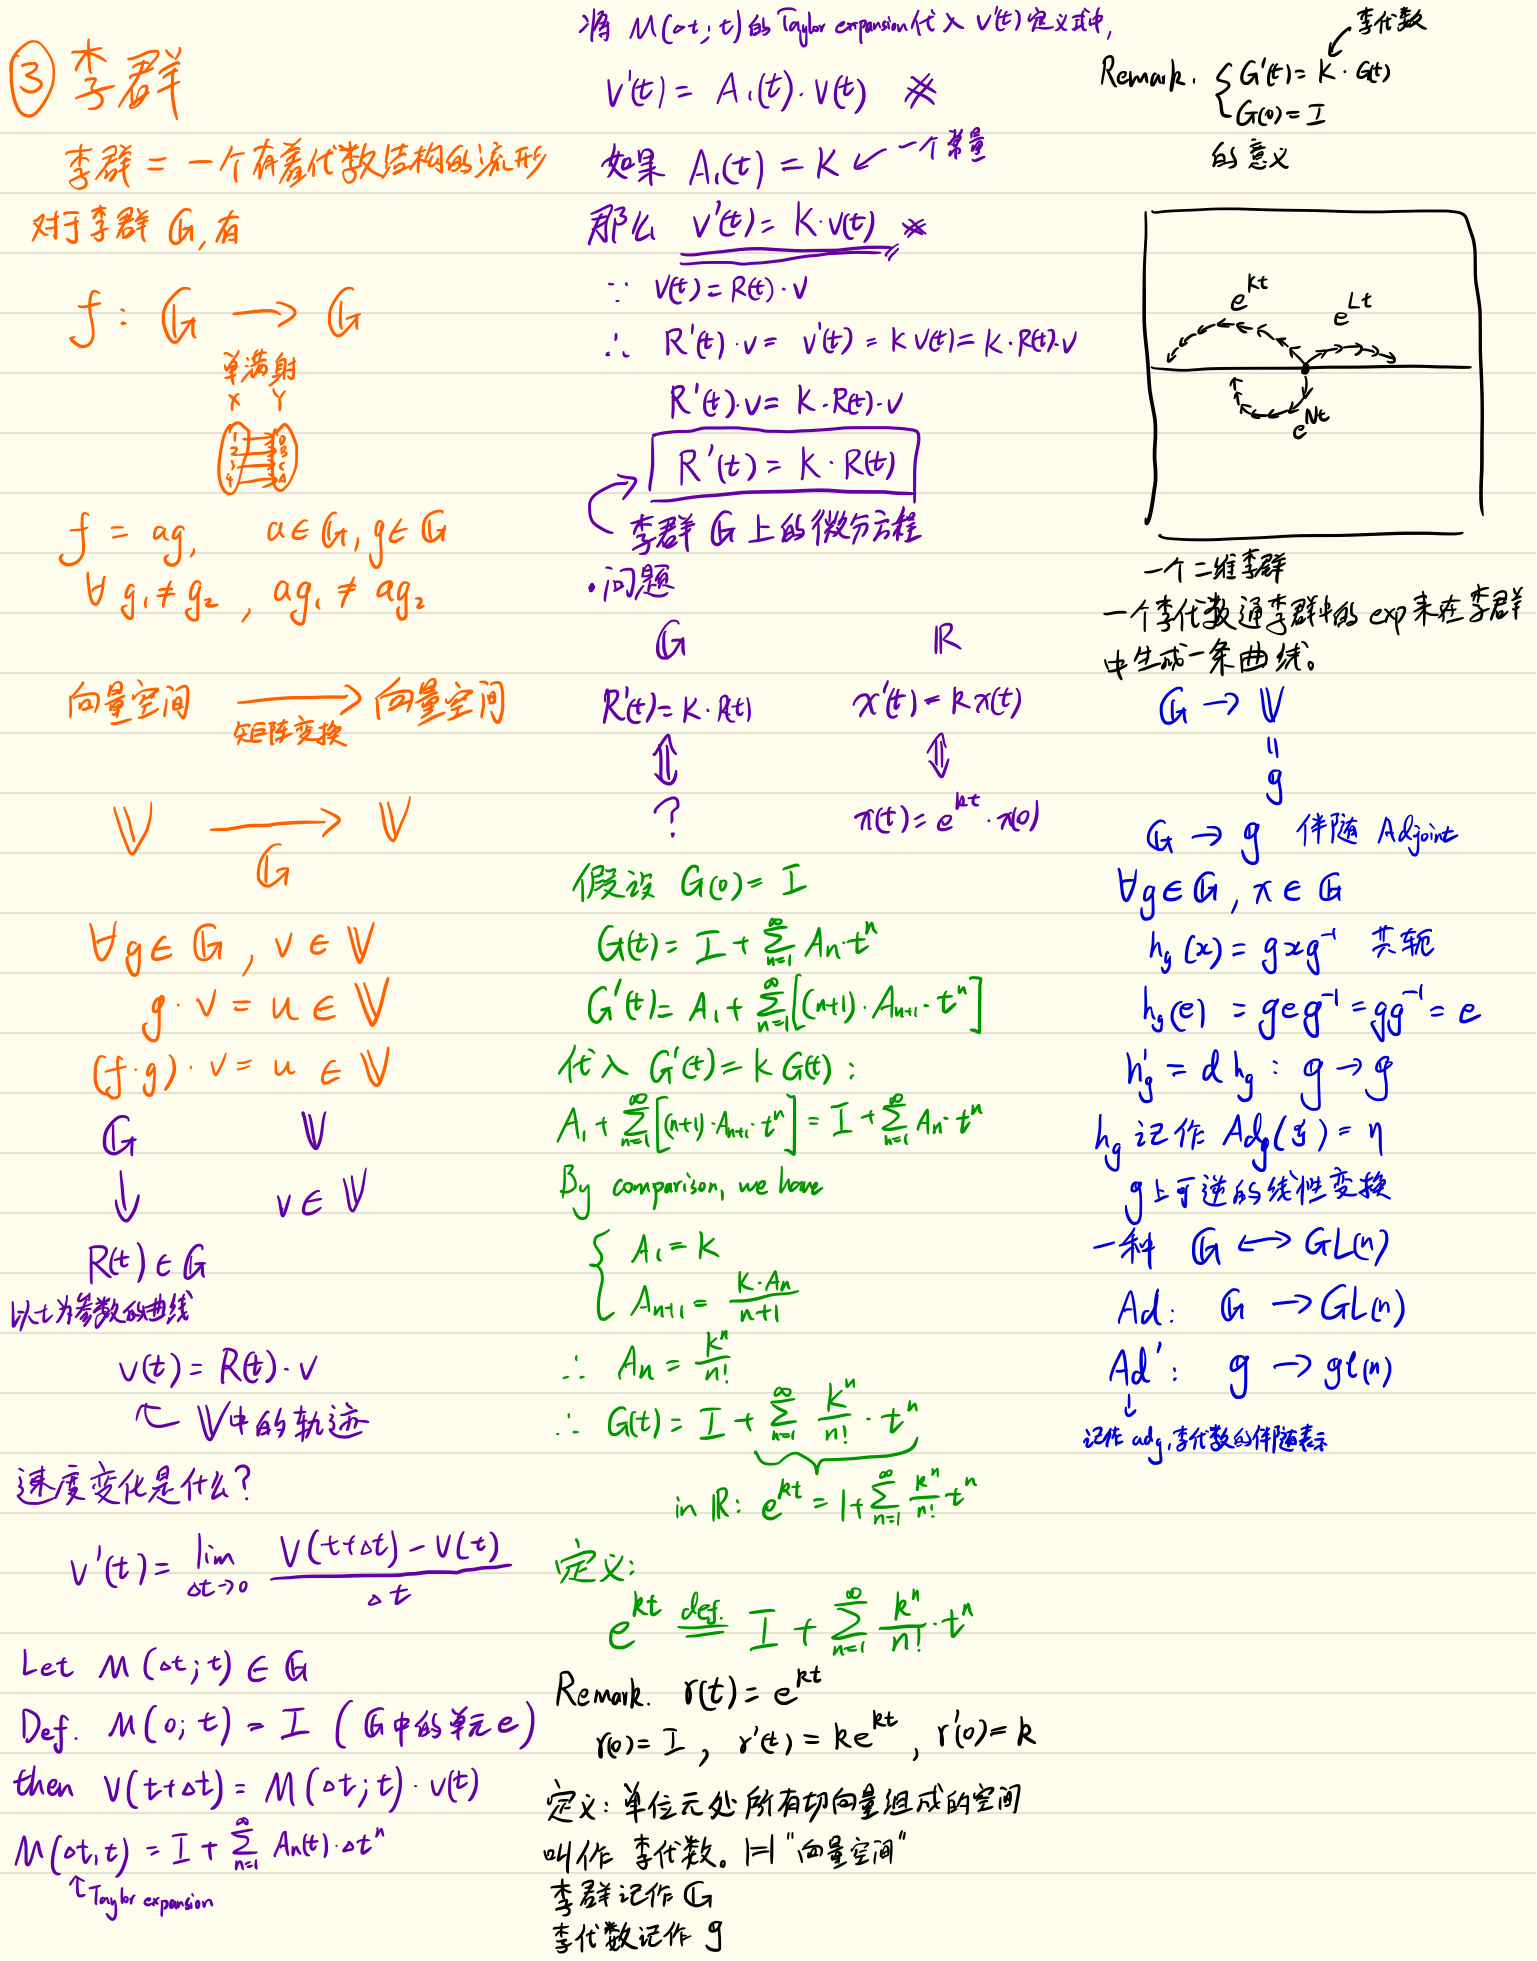 ③ 李群
李群 = 一个有着代数结构的流形
对于李群 𝔾, 有
f : 𝔾 → 𝔾
单满射
X Y
f = ag, a ∈ 𝔾, g ∈ 𝔾
∀ g₁ ≠ g₂ , ag₁ ≠ ag₂
向量空间 → 向量空间
矩阵变换
𝕍 → 𝕍
𝔾
∀ g ∈ 𝔾 , v ∈ 𝕍
g · v = u ∈ 𝕍
(f · g) · v = u ∈ 𝕍
𝔾 𝕍
↓ v ∈ 𝕍
R(t) ∈ 𝔾
以t为参数的曲线
v(t) = R(t) · v
↖ 𝕍中的轨迹
速度变化是什么?
v'(t) = lim Δt→0 (V(t+Δt) − V(t)) / Δt
Let M(Δt; t) ∈ 𝔾
Def. M(0; t) = I ( 𝔾中的单元e )
then V(t+Δt) = M(Δt; t) · v(t)
M(Δt, t) = I + ∑_{n=1}^{∞} An(t) · Δtⁿ
↑ Taylor expansion
将 M(Δt; t) 的 Taylor expansion 代入 V'(t) 定义式中,
V'(t) = A₁(t) · V(t) ※
如果 A₁(t) = K ↙ 一个常量
那么 v'(t) = K · v(t) ※
∵ V(t) = R(t) · v
∴ R'(t) · v = v'(t) = K V(t) = K · R(t) · v
R'(t) · v = K · R(t) · v
R'(t) = K · R(t)
李群 𝔾 上的微分方程
· 问题
𝔾 ℝ
R'(t) = K · R(t) x'(t) = k x(t)
⇕ ⇕
? x(t) = e^{kt} · x(0)
假设 G(0) = I
G(t) = I + ∑_{n=1}^{∞} An · tⁿ
G'(t) = A₁ + ∑_{n=1}^{∞} [(n+1) · A_{n+1} · tⁿ]
代入 G'(t) = k G(t) :
A₁ + ∑_{n=1}^{∞} [(n+1) · A_{n+1} · tⁿ] = I + ∑_{n=1}^{∞} An · tⁿ
By comparison, we have
{ A₁ = K
A_{n+1} = K · An / n+1
∴ An = kⁿ / n!
∴ G(t) = I + ∑_{n=1}^{∞} Kⁿ / n! · tⁿ
in ℝ: e^{kt} = 1 + ∑_{n=1}^{∞} kⁿ / n! tⁿ
定义:
e^{kt} def. = I + ∑_{n=1}^{∞} kⁿ / n! · tⁿ
Remark. r(t) = e^{kt}
r(0) = I , r'(t) = k e^{kt} , r'(0) = k
定义: 单位元处所有切向量组成的空间
叫作 李代数。 "向量空间"
李群记作 𝔾
李代数记作 g
李代数
Remark. { G'(t) = K · G(t)
G(0) = I
的意义
e^{Kt} e^{Lt}
e^{Nt}
一个二维李群
一个李代数通李群中的 exp 来在李群
中生成一条曲线。
𝔾 → 𝕍
=
g
𝔾 → g 伴随 Adjoint
∀ g ∈ 𝔾 , x ∈ 𝔾
h_g (x) = g x g⁻¹ 共轭
h_g (e) = g e g⁻¹ = g g⁻¹ = e
h'_g = d h_g : g → g
h_g 记作 Ad_g(ξ) = η
g上可逆的线性变换
一种 𝔾 ↔ GL(n)
Ad: 𝔾 → GL(n)
Ad': g → gl(n)
↓
记作 ad_g, 李代数的伴随表示